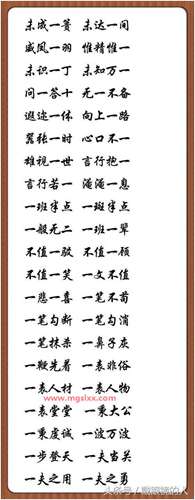 未成一篑 未达一间
威凤一羽 惟精惟一
未识一丁 未知万一
问一答十 无一不备
遐迩一体 向上一路
嚣张一时 心口不一
雄视一世 言行抱一
言行若一 淹淹一息
一班半点 一斑半点
一般无二 一班一辈
不值一驳 不值一顾
不值一笑 一文不值
一悲一喜 一笔不苟
一笔勾断 一笔勾消
一笔抹杀 一鼻子灰
一鞭先着 一表非俗
一表人材 一表人物
www.mgslxx.com
一表堂堂 一秉大公
一秉虔诚 一波万波
一步登天 一夫当关
一夫之用 一夫之勇